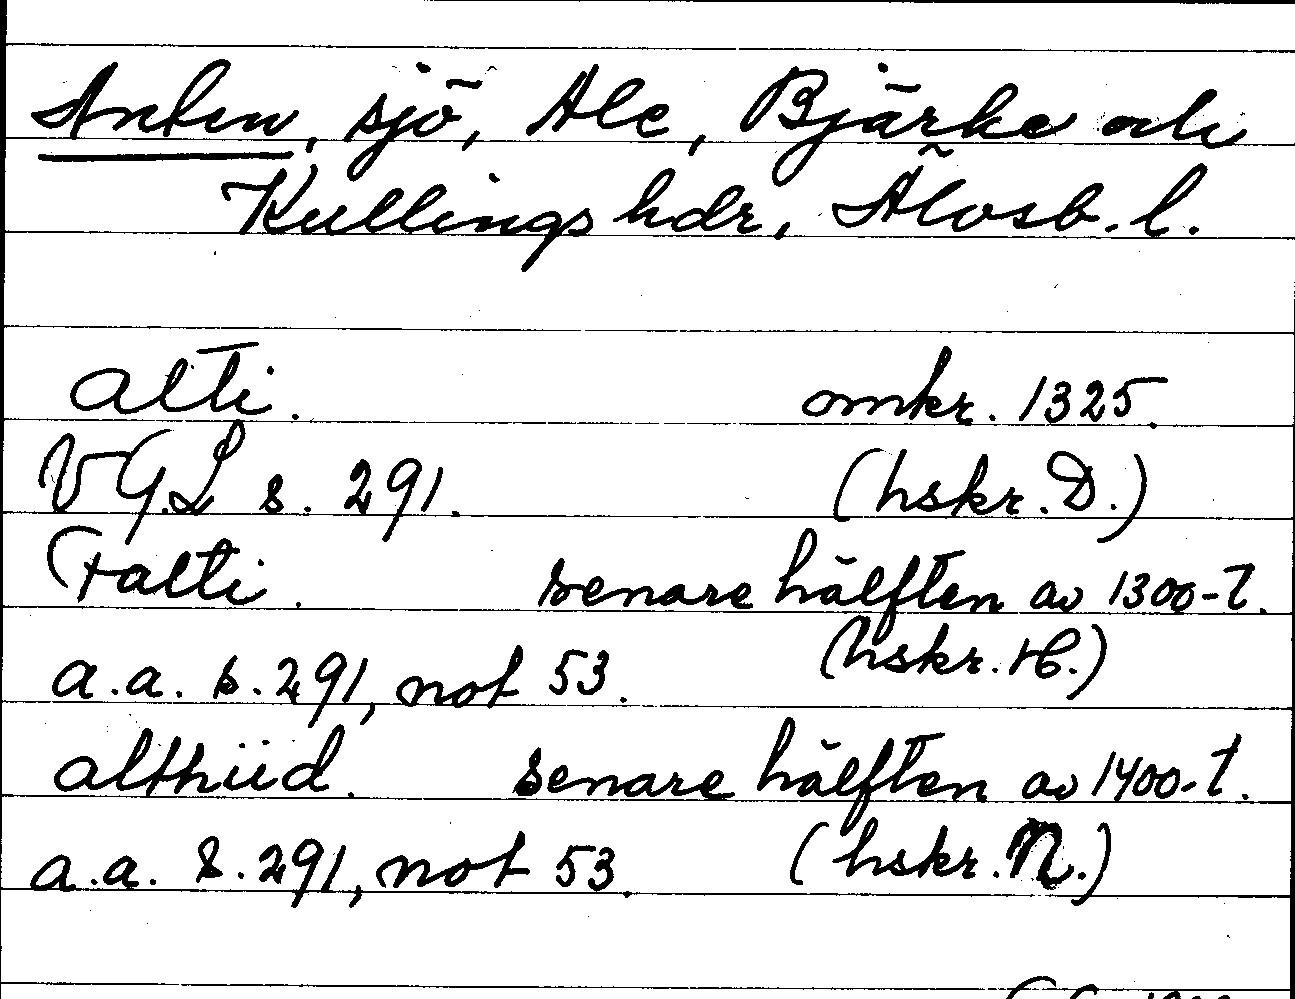 Anten, sjö, Ale, Bjärke och
Kullings hdr, Älvsb. l.
alti. omkr. 1325.
VGL s. 291. (hskr. D.)
Falti. senare hälften av 1300-t.
a.a. s. 291, not 53. (hskr. H.)
althiid. senare hälften av 1400-t.
a.a. s. 291, not 53. (hskr. N.)